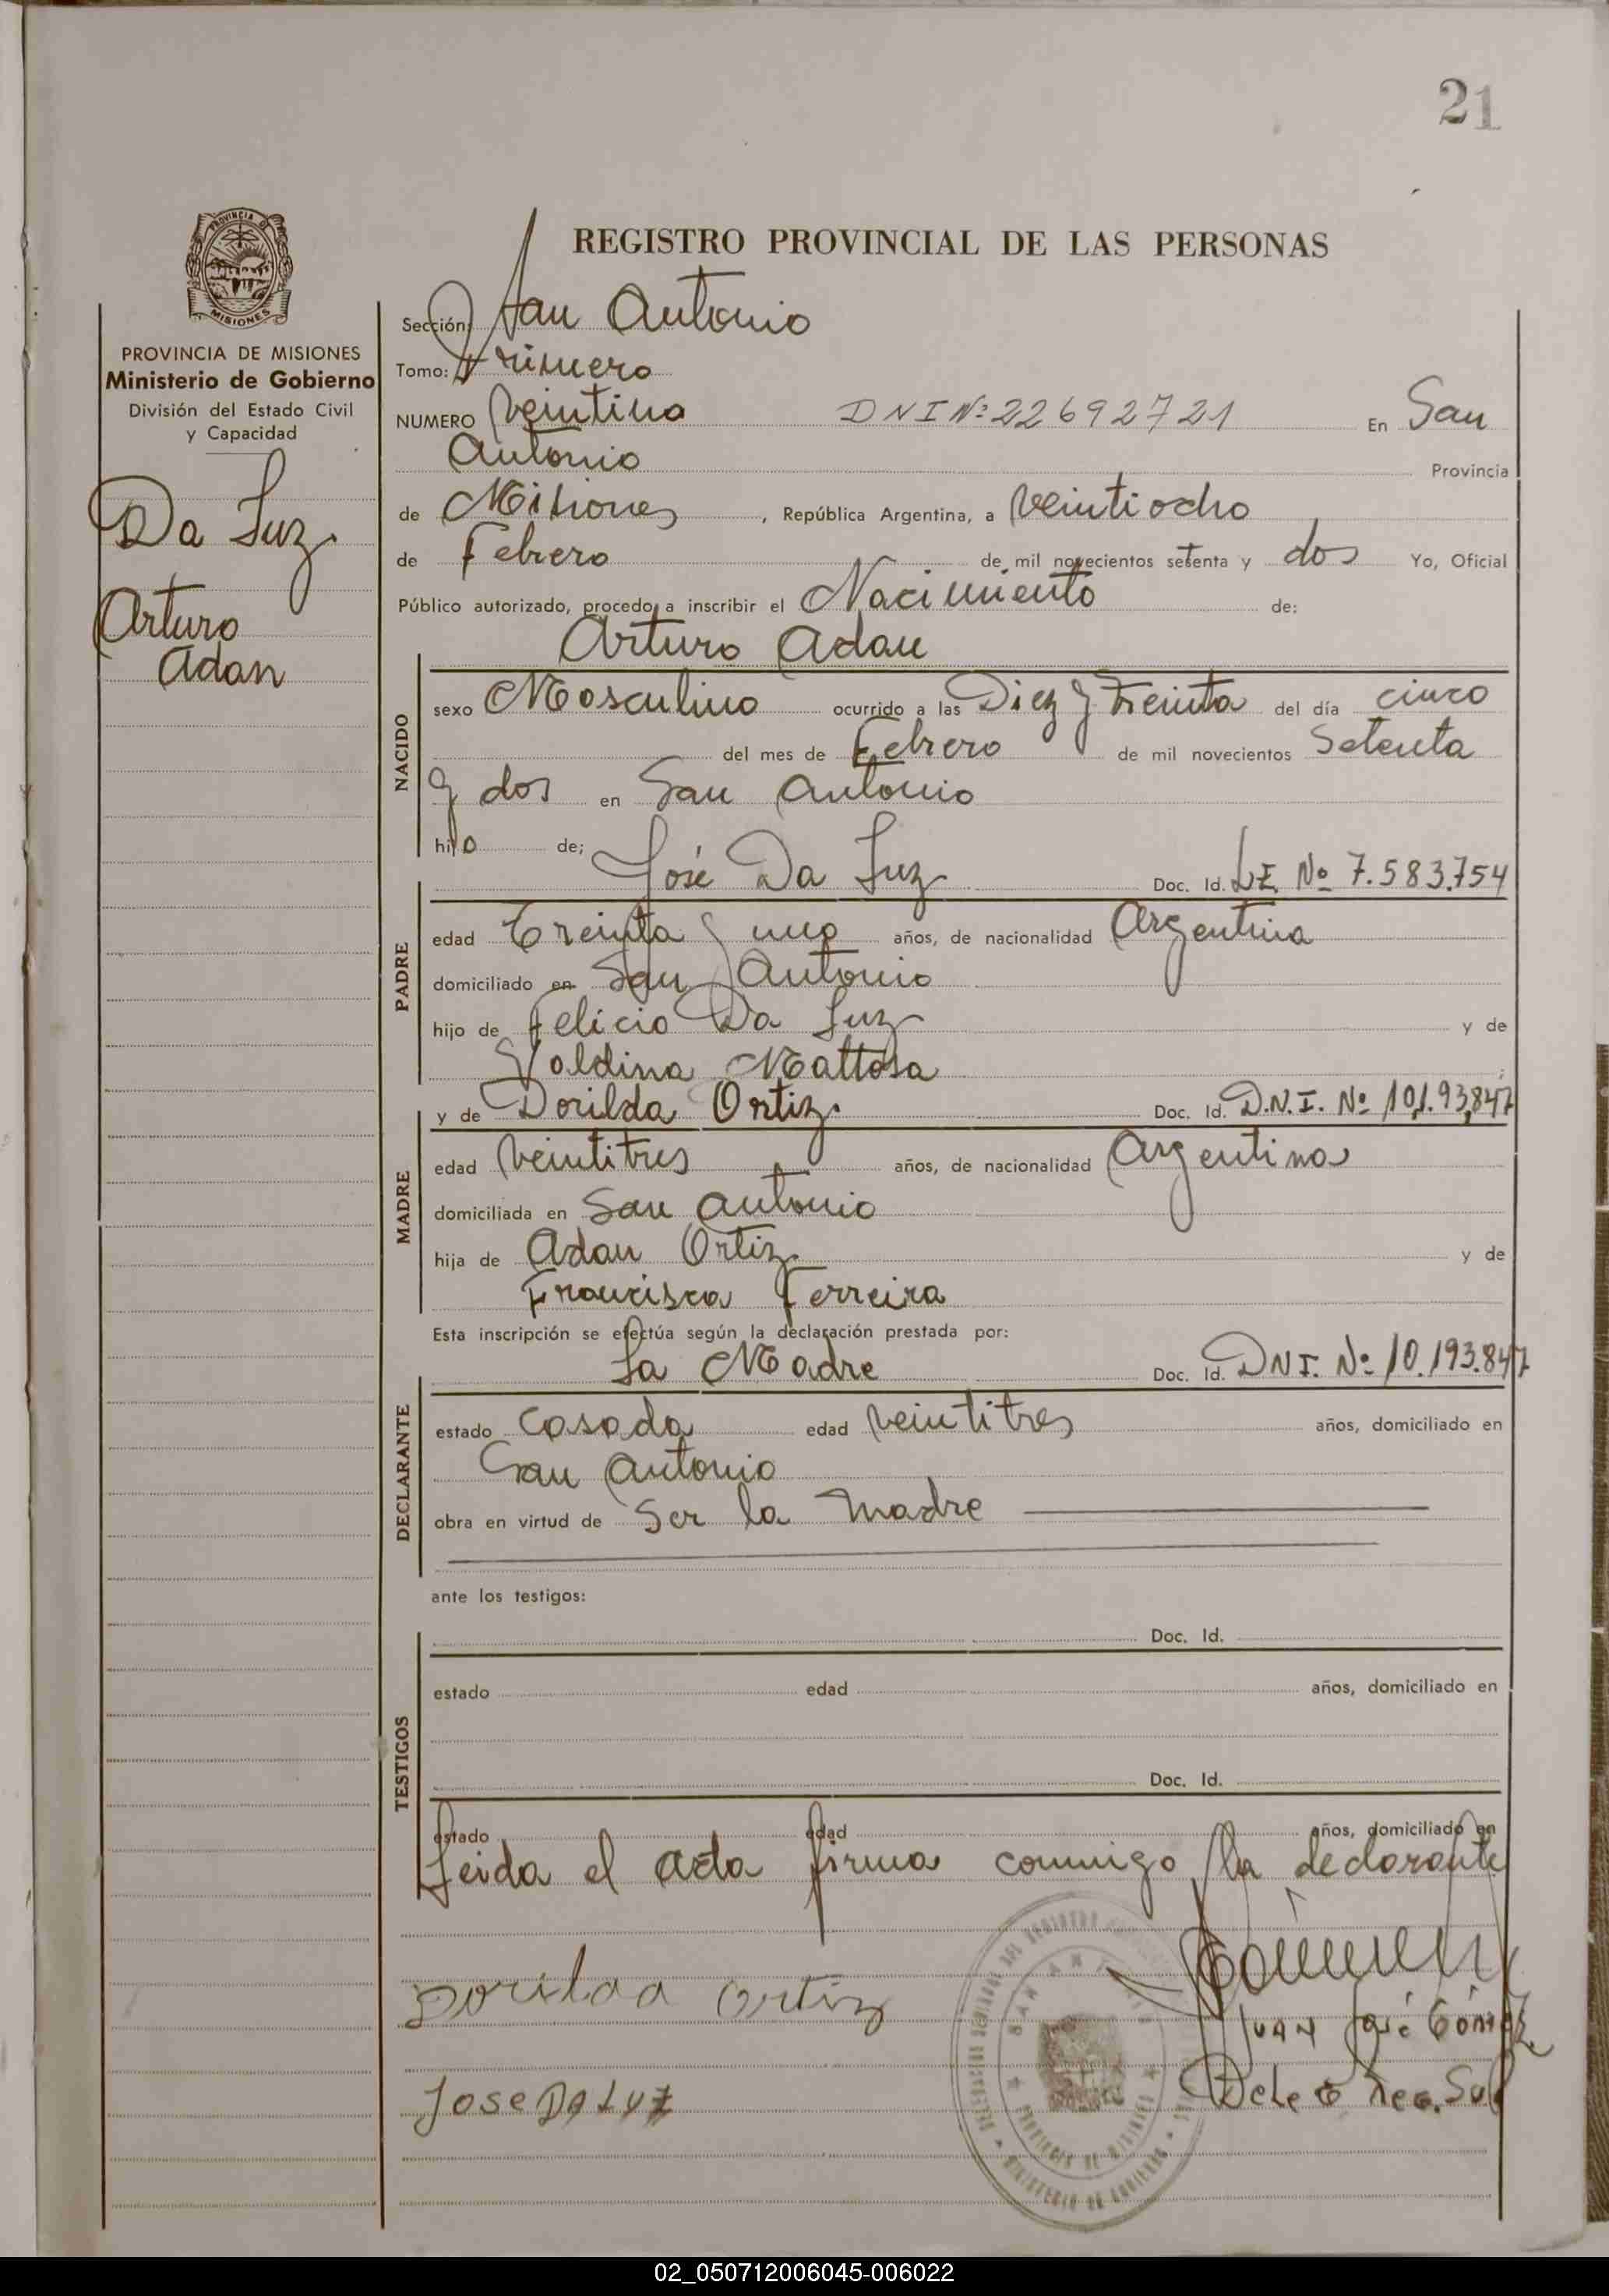 21
PROVINCIA DE
MISIONES
PROVINCIA DE MISIONES
Ministerio de Gobierno
División del Estado Civil
y Capacidad
Da Luz
Arturo
Adan
REGISTRO PROVINCIAL DE LAS PERSONAS
Sección: San Antonio
Tomo: Primero
NUMERO Veintiuno DNI Nº 22692721 En San
Antonio Provincia
de Misiones, República Argentina, a Veintiocho
de Febrero de mil novecientos setenta y dos Yo, Oficial
Público autorizado, procedo a inscribir el Nacimiento de:
Arturo Adan
NACIDO
sexo Masculino ocurrido a las Diez y Treinta del día cinco
del mes de Febrero de mil novecientos Setenta
y dos en San Antonio
hijo de;
José Da Luz Doc. Id. L.E. Nº 7.583.754
PADRE
edad Treinta y uno años, de nacionalidad Argentina
domiciliado en San Antonio
hijo de Felicio Da Luz y de
Valdina Mattosa
y de Dorilda Ortiz. Doc. Id. D.N.I. Nº 10.193.847
MADRE
edad Veintitres años, de nacionalidad Argentina
domiciliada en San Antonio
hija de Adan Ortiz y de
Francisca Ferreira
Esta inscripción se efectúa según la declaración prestada por:
La Madre Doc. Id. DNI. Nº 10.193.847
DECLARANTE
estado Casada edad Veintitres años, domiciliado en
San Antonio
obra en virtud de Ser la Madre
ante los testigos:
TESTIGOS
Doc. Id.
estado edad años, domiciliado en
Doc. Id.
estado edad años, domiciliado en
Leida el acta firma conmigo la declarante
Dorilda Ortiz
Juan José Gómez
Jose Da Luz
02_050712006045-006022